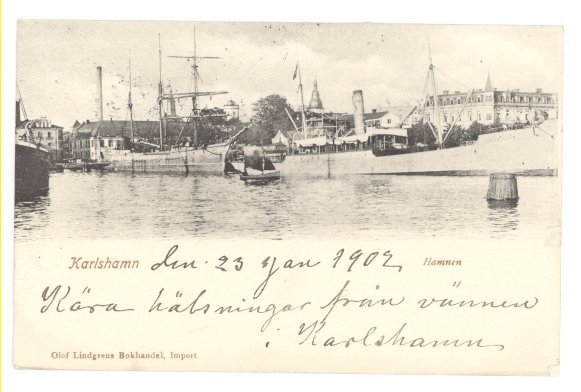 Karlshamn den 23 Jan 1902 Hamnen
Kära hälsningar från vännen
i Karlshamn
Olof Lindgrens Bokhandel, Import